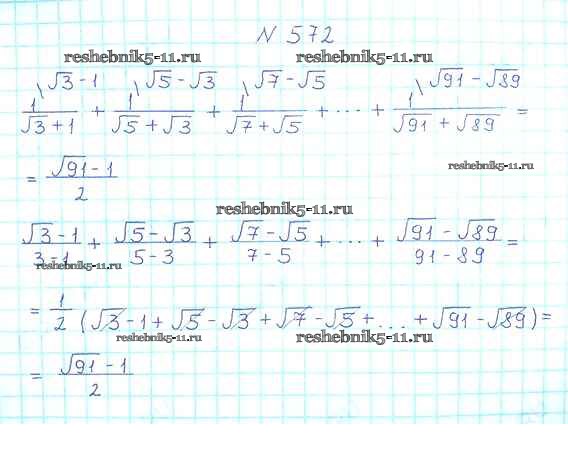 N 572
reshebnik5-11.ru reshebnik5-11.ru
\√3 - 1 \√5 - √3 \√7 - √5 \√91 - √89
1/(√3 + 1) + 1/(√5 + √3) + 1/(√7 + √5) + ... + 1/(√91 + √89) =
reshebnik5-11.ru
= (√91 - 1)/2
reshebnik5-11.ru
(√3 - 1)/(3 - 1) + (√5 - √3)/(5 - 3) + (√7 - √5)/(7 - 5) + ... + (√91 - √89)/(91 - 89) =
reshebnik5-11.ru
= 1/2 (√3 - 1 + √5 - √3 + √7 - √5 + ... + √91 - √89) =
reshebnik5-11.ru reshebnik5-11.ru
= (√91 - 1)/2